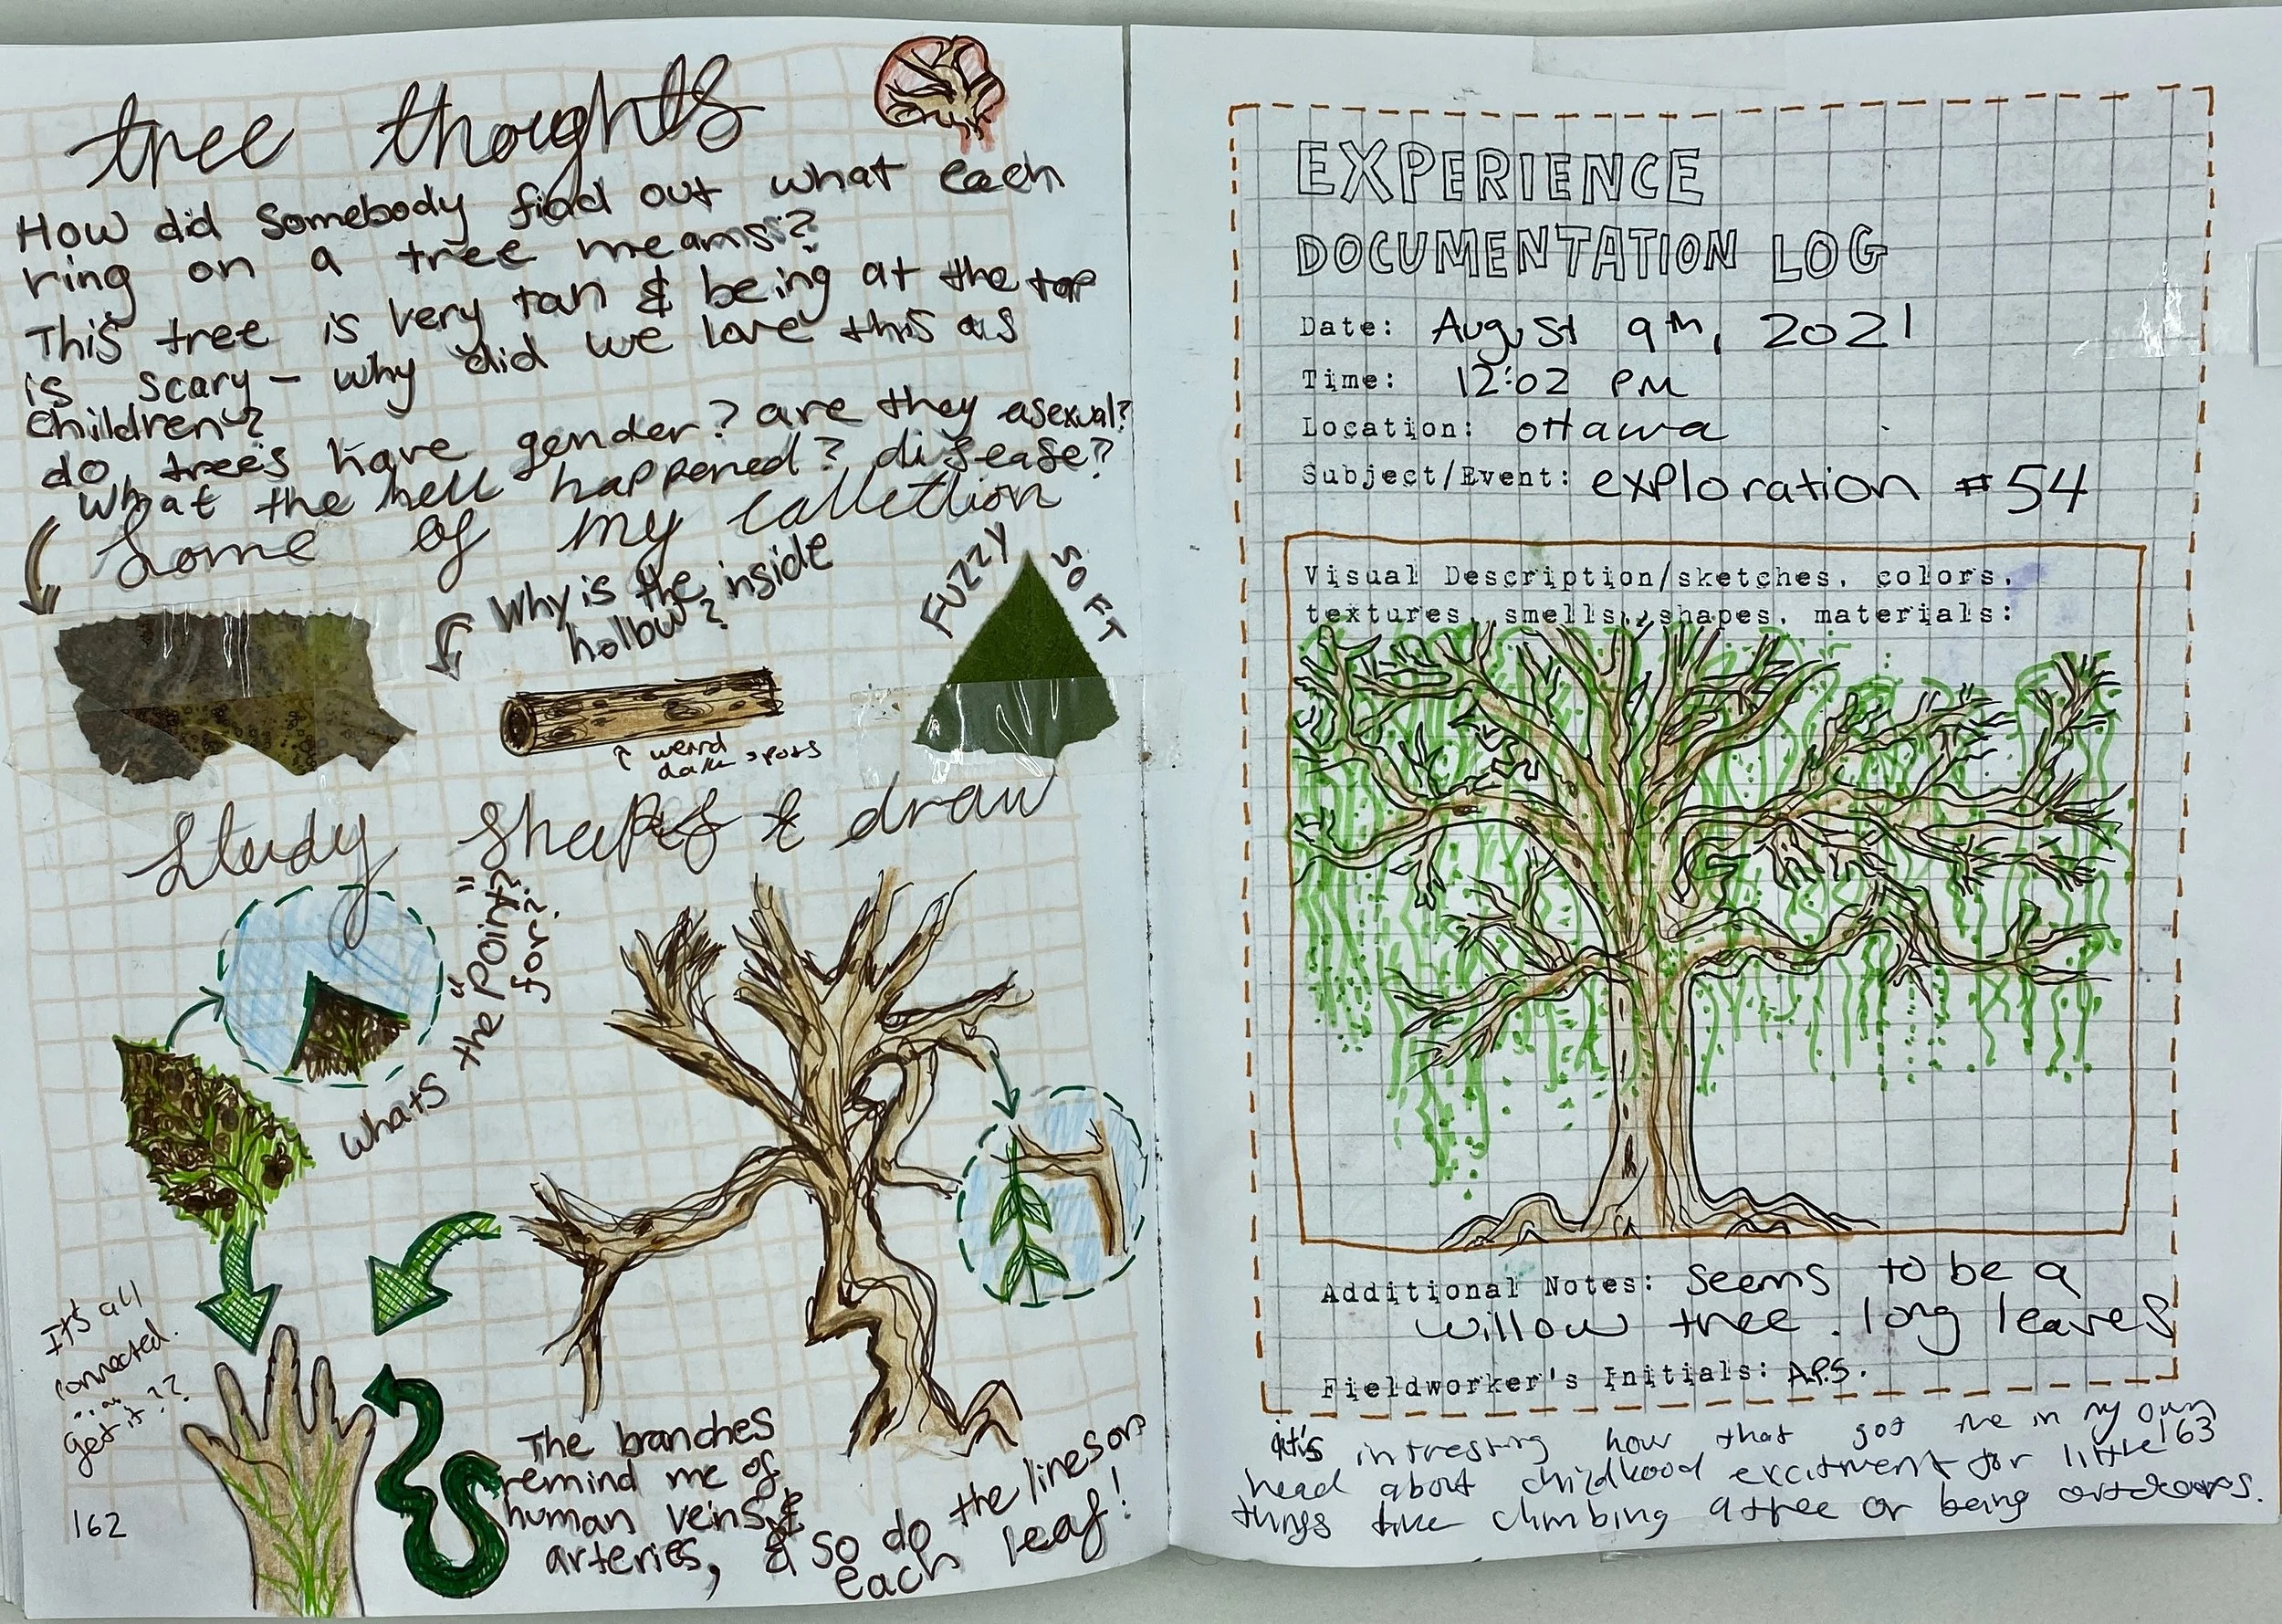 tree thoughts
How did Somebody find out what each
ring on a tree means?
This tree is very tan & being at the top
is scary - why did we love this as
children?
do trees have gender? are they asexual?
What the hell happened? disease?
Some of my callection
Why is the inside
hollow?
FUZZY SOFT
↑ weird
dark spots
Study Shapes & draw
Whats the "POint"
for?
It's all
connected.
get it??
The branches
remind me of
human veins &
arteries, & so do the lines on
each leaf!
162
EXPERIENCE
DOCUMENTATION LOG
Date: August 9th, 2021
Time: 12:02 PM
Location: ottawa
Subject/Event: exploration #54
Visual Description/sketches, colors,
textures, smells, shapes, materials:
Additional Notes: seems to be a
willow tree. long leaves
Fieldworker's Initials: A.P.S.
it's intresting how that got me in my own
head about childhood excitment for little
163
things like climbing a tree or being outdoors.